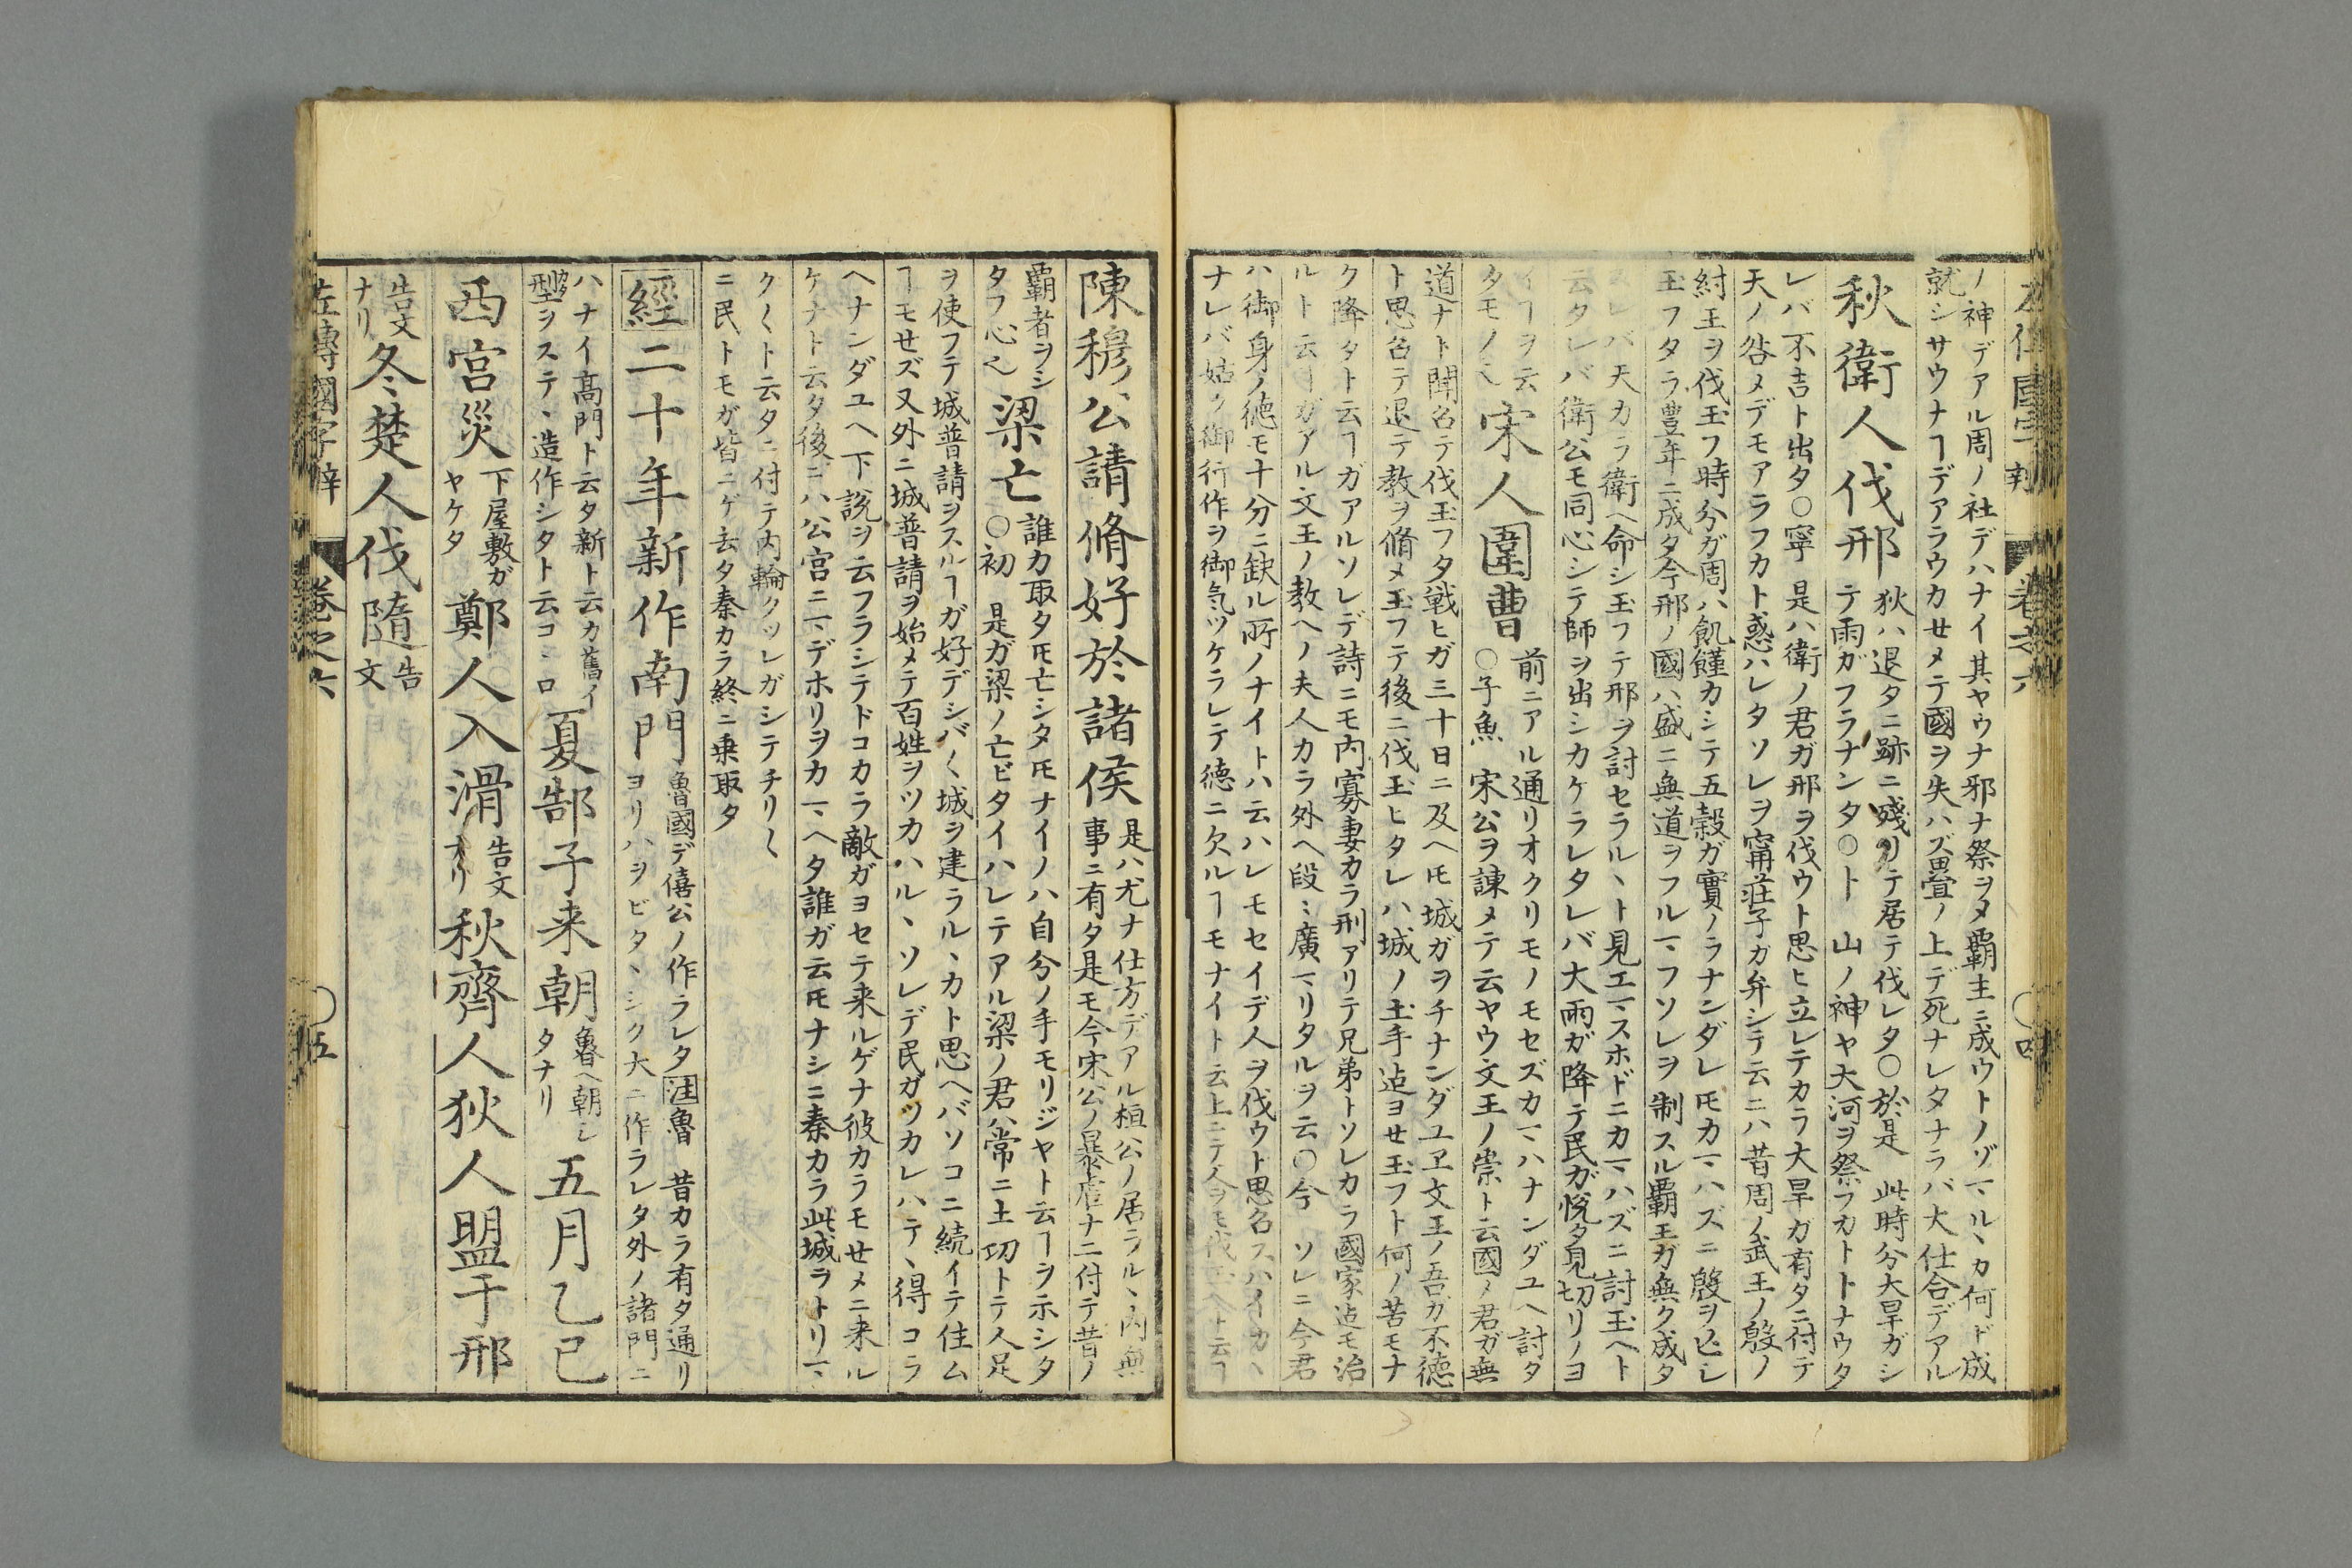 左傳國字辯 卷之六 四
ノ神デアル周ノ社デハナイ其ヤウナ邪ナ祭ヲメ覇主ニ成ウトノゾマルヽカ何ド成
就シサウナヿデアラウカせメテ國ヲ失ハズ畳ノ上デ死ナレタナラバ大仕合デアル
秋衛人伐邢
狄ハ退タニ跡ニ殘リテ居テ伐レタ○於是 此時分大旱ガシ
テ雨ガフラナンタ○ト 山ノ神ヤ大河ヲ祭フカトトナウタ
レバ不吉ト出タ○寧 是ハ衛ノ君ガ邢ヲ伐ウト思ヒ立レテカラ大旱ガ有タニ付テ
天ノ咎メデモアラフカト惑ハレタソレヲ甯荘子ガ弁シテ云ニハ昔周ノ武王ノ殷ノ
紂王ヲ伐玉フ時分ガ周ハ飢饉カシテ五穀ガ實ノラナンダレ𪜈カマハズニ殷ヲ亡シ
玉フタラ豊年ニ成タ今邢ノ國ハ盛ニ無道ヲフルマフソレヲ制スル覇王ガ無ク成タ
レバ天カラ衛ヘ命シ玉フテ邢ヲ討セラルヽト見エマスホドニカマハズニ討玉ヘト
云タレバ衛公モ同心シテ師ヲ出シカケラレタレバ大雨ガ降テ民ガ悦タ見切リノヨ
イヿヲ云
タモノ也
宋人圍曹
前ニアル通リオクリモノモセズカマハナンダユヘ討タ
○子魚 宋公ヲ諌メテ云ヤウ文王ノ崇ト云國ノ君ガ無
道ナト聞召テ伐玉フタ戦ヒガ三十日ニ及ヘ𪜈城ガヲチナンダユヱ文王ノ吾カ不徳
ト思召テ退テ教ヲ脩メ玉フテ後ニ伐玉ヒタレハ城ノ土手迠ヨせ玉フト何ノ苦モナ
ク降タト云ヿガアルソレデ詩ニモ内寡妻カラ刑アリテ兄弟トソレカラ國家迠モ治
ルト云ヿガアル文王ノ教ヘノ夫人カラ外ヘ段〻廣マリタルヲ云○今 ソレニ今君
ハ御身ノ徳モ十分ニ缺ル所ノナイトハ云ハレモセイデ人ヲ伐ウト思召スハイカヽ
ナレバ姑ク御行作ヲ御気ツケラレテ徳ニ欠ルヿモナイト云上ニテ人ヲモ伐玉ヘト云ヿ
陳穆公請脩好於諸侯
是ハ尤ナ仕方デアル桓公ノ居ラルヽ内無
事ニ有タ是モ今宋公ノ暴虐ナニ付テ昔ノ
覇者ヲシ
タフ心也
梁亡
誰カ取タ𪜈亡シタ𪜈ナイノハ自分ノ手モリジヤト云ヿヲ示シタ
○初 是ガ梁ノ亡ビタイハレテアル梁ノ君ハ常ニ土功トテ人足
ヲ使フテ城普請ヲスルヿガ好デシバ〱城ヲ建ラルヽカト思ヘバソコニ続イテ住ム
ヿモせズ又外ニ城普請ヲ始メテ百姓ヲツカハルヽソレデ民ガツカレハテヽ得コラ
ヘナンダユヘ下説ヲ云フラシテドコカラ敵ガヨセテ来ルゲナ彼カラモせメニ来ル
ケナト云タ後ニハ公宮ニマデホリヲカマヘタ誰ガ云𪜈ナシニ秦カラ此城ヲトリマ
ク〱ト云タニ付テ内輪クツレガシテチリ〱
ニ民トモガ皆ニゲ去タ秦カラ終ニ乗取タ
經二十年新作南門
魯國デ僖公ノ作ラレタ注魯 昔カラ有タ通リ
ヨリハヲビタヽシク大ニ作ラレタ外ノ諸門ニ
ハナイ高門ト云タ新ト云カ舊イ
型ヲステヽ造作シタト云コヽロ
夏郜子来朝
魯ヘ朝シ
タナリ
五月乙巳
西宮災
下屋敷ガ
ヤケタ
鄭人入滑
告文
ナリ
秋齊人狄人盟于邢
告文
ナリ
冬楚人伐隨
告
文
左傳國字辯 卷之六 五